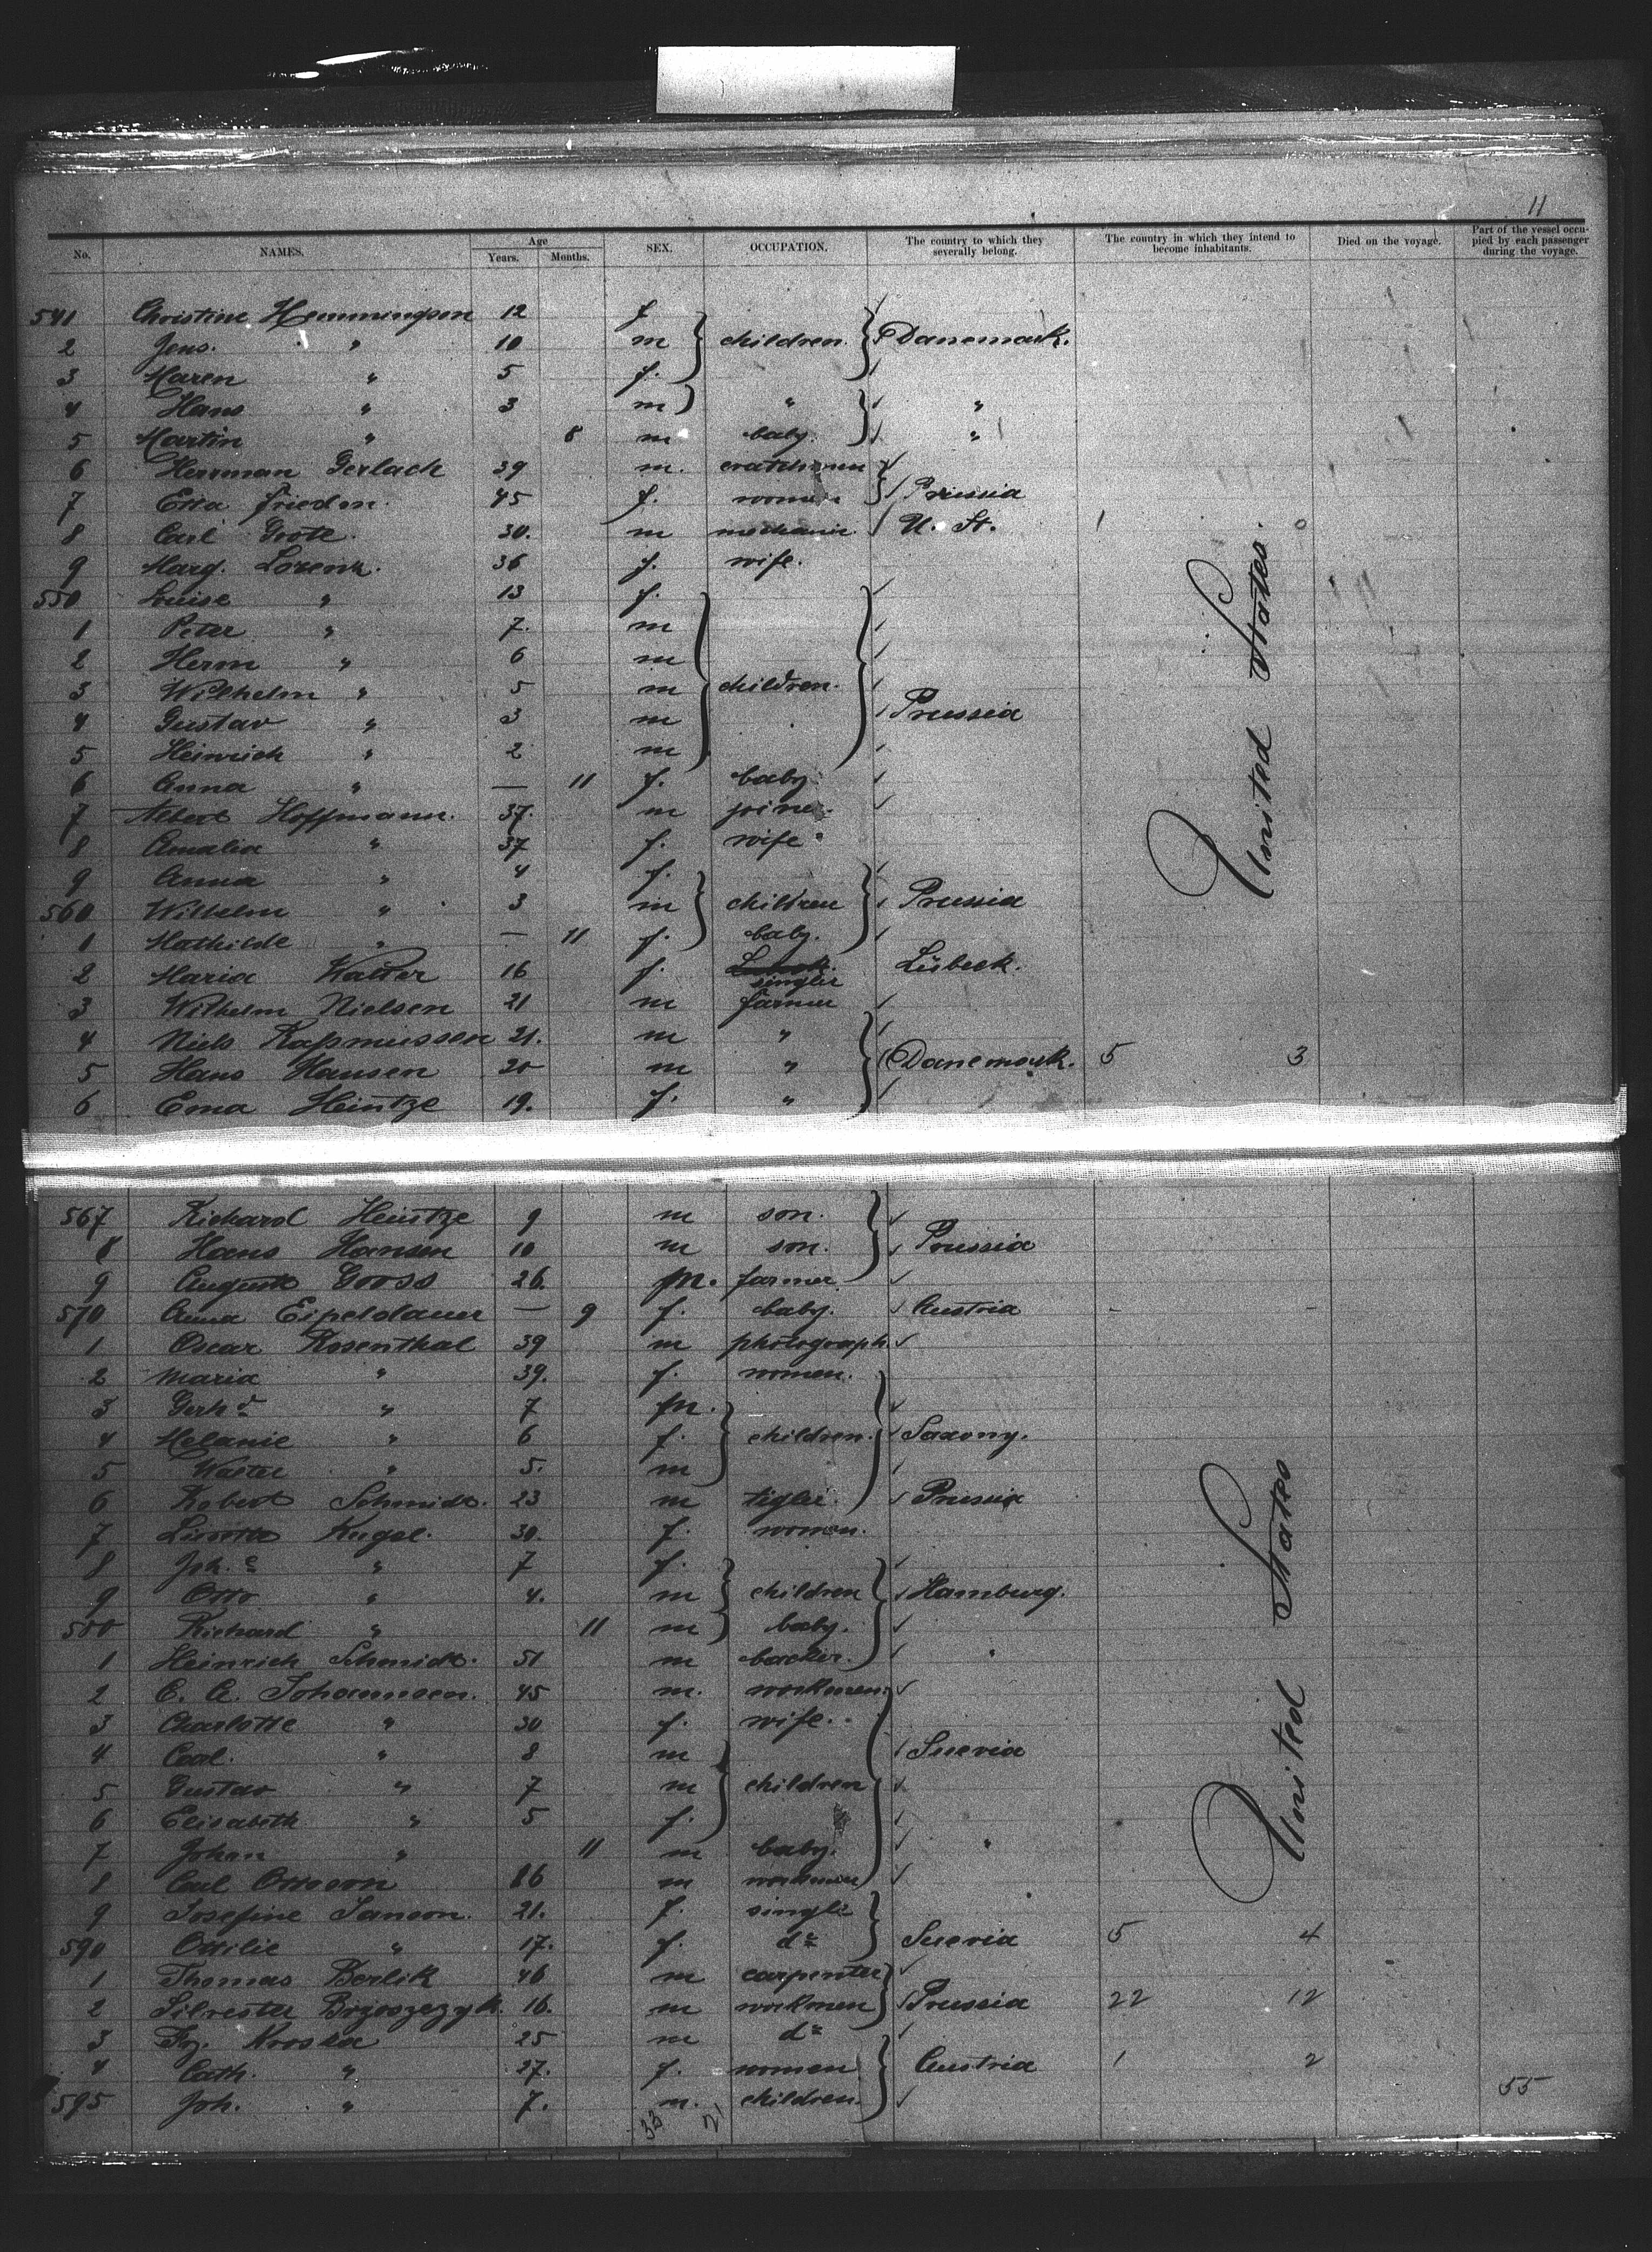 11
No. NAMES. Age Years. Months. SEX. OCCUPATION. The country to which they severally belong. The country in which they intend to become inhabitants. Died on the voyage. Part of the vessel occupied by each passenger during the voyage.
541 Christine Hemmingsen 12 f
2 Jens. " 10 m children. Danemark.
3 Maren " 5 f.
4 Hans " 3 m " "
5 Martin " 8 m baby. "
6 Herrman Gerlach 39 m.
7 Friedm. 45 f. women Prussia
8 Carl Grote. 30. m mechanic U. St. 1 0
9 Marg. Lorenz. 36 f. wife.
550 Luise " 13 f.
1 Peter " 7. m
2 Herm " 6 m
3 Wilhelm " 5 m children.
4 Gustav " 3 m Prussia
5 Heinrich " 2 m
6 Anna " — 11 f. baby.
7 Albert Hoffmann. 37. m joiner.
8 Amalia " 37 f. wife
9 Anna " 4 f.
560 Wilhelm " 3 m children Prussia
1 Mathilde " — 11 f. baby.
2 Maria Walter 16 f. single Lübeck.
3 Wilhelm Nielsen 21 m farmer
4 Niels Raßmussen 21. m "
5 Hans Hansen 20 m " Danemark. 5 3
6 Ema Heintze 19. f. "
United States.
567 Richard Heintze 9 m son.
8 Hans Hansen 10 m son. Prussia
9 August Gooss 26. m. farmer
570 Anna Eipeldauer — 9 f. baby. Austria - -
1 Oscar Rosenthal 39 m photograph.
2 Maria " 39. f. women.
3 Gerh.d " 7 m.
4 Melanie " 6 f. children. Saxony.
5 Walter " 5. m
6 Robert Schmidt. 23 m tigler. Prussia
7 Kugel. 30. f. women.
8 Joh.e " 7 f.
9 Otto " 4. m children Hamburg.
580 Richard " 11 m baby.
1 Heinrich Schmidt. 51 m backer.
2 C. A. Johannsen. 45 m. workmen.
3 Charlotte " 30 f. wife.
4 Carl. " 8 m Suevia
5 Gustav " 7 m children
6 Elisabeth " 5 f.
7 Johan " 11 m baby. "
8 Carl Ottoson 26 m workmen
9 Josefine Janson. 21. f. single
590 Ottilie " 17. f. do Suevia 5 4
1 Thomas Berlik 46 m carpenter
2 Silvester Brzoszczyk. 16. m workmen Prussia 22 12
3 Fz. Kroska 25 m do
4 Cath. " 27. f. women Austria 1 2
595 Joh. " 7. m. children.
United States
55
33 21